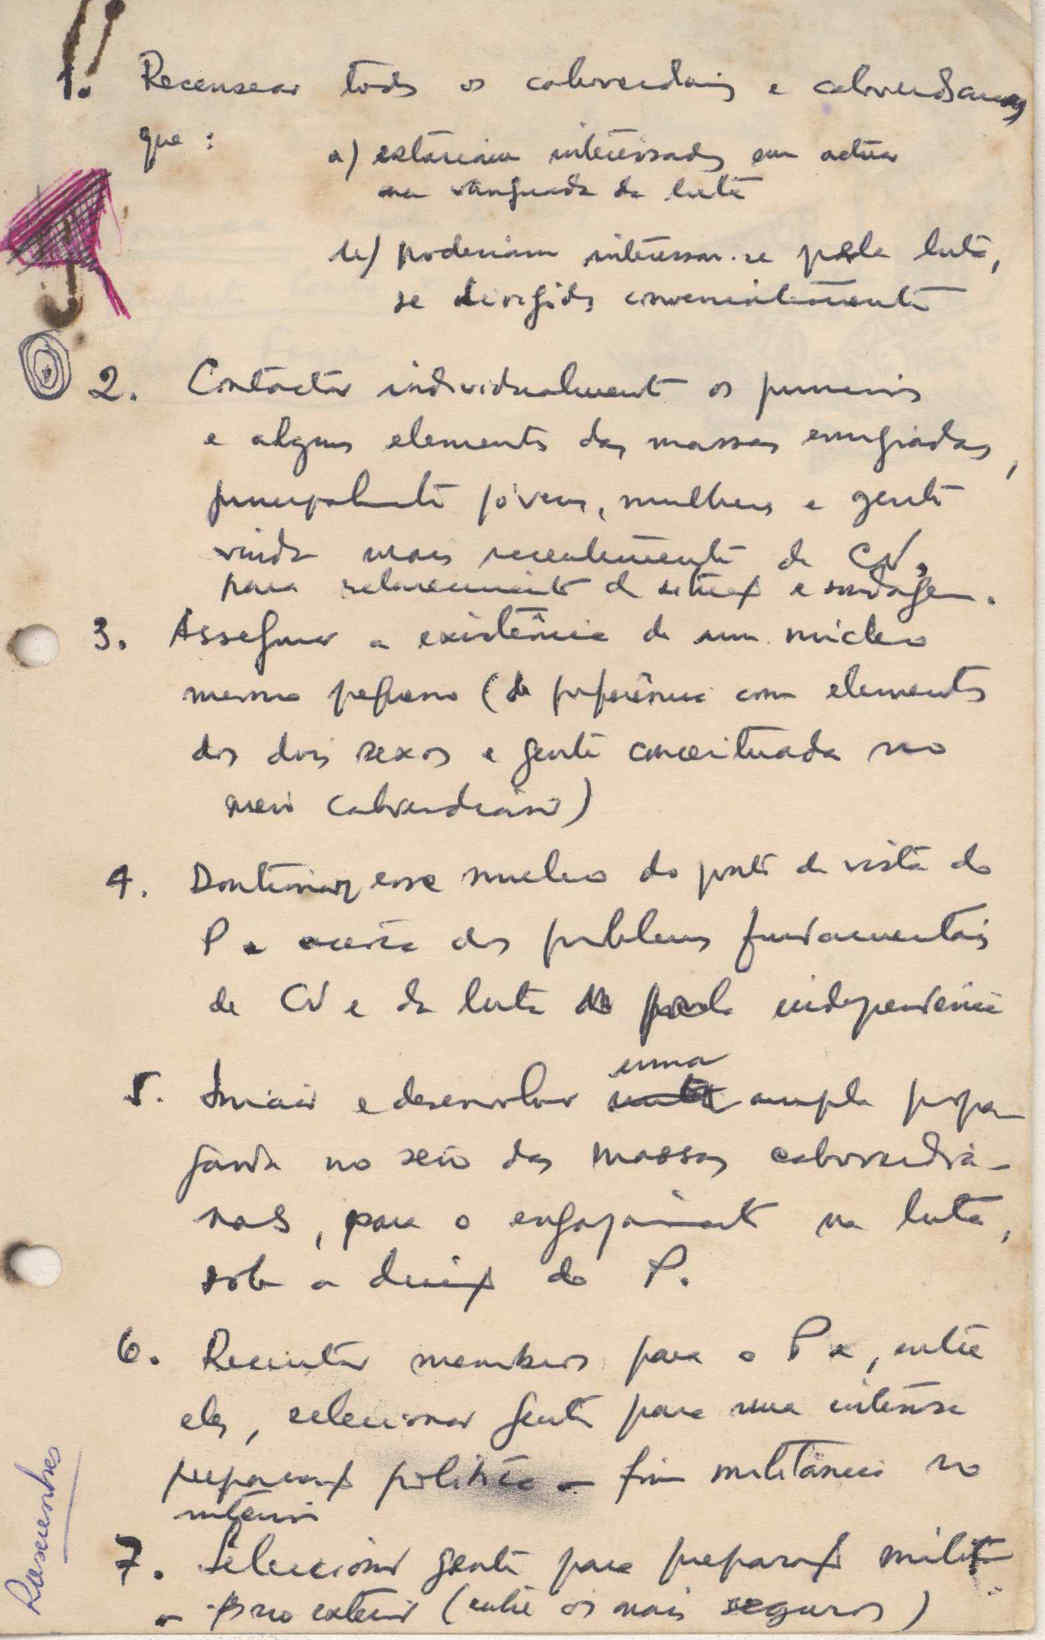 1. Recensear todos os caboverdeanos e caboverdeanas
que :
a) estariam interessados em actuar
na vanguarda da luta
b) poderiam interessar-se pela luta,
se dirigidos convenientemente
2. Contactar individualmente os primeiros
e alguns elementos das massas emigradas,
principalmente jóvens, mulheres e gente
vinda mais recentemente de CV,
para esclarecimento da situaç e sondagem.
3. Assegurar a existência de um núcleo
mesmo pequeno (de preferência com elementos
dos dois sexos e gente conceituada no
meio caboverdeano)
4. Doutrinar esse nucleo do ponto de vista do
P e acerca dos problemas fundamentais
de CV e da luta pela independência
5. Iniciar e desenvolver uma ampla propa-
ganda no seio das massas caboverdia-
nas, para o engajamento na luta,
sob a direcç do P.
6. Recrutar membros para o P e, entre
eles, seleccionar gente para uma intensa
preparaç politica - fim militância no
interior
7. Seleccionar gente para preparaç milit
- no exterior (entre os mais seguros)
Rascunhos